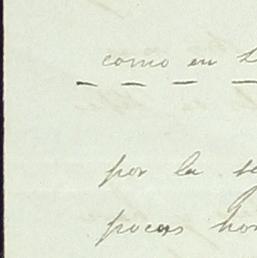 como en
por la
pocas